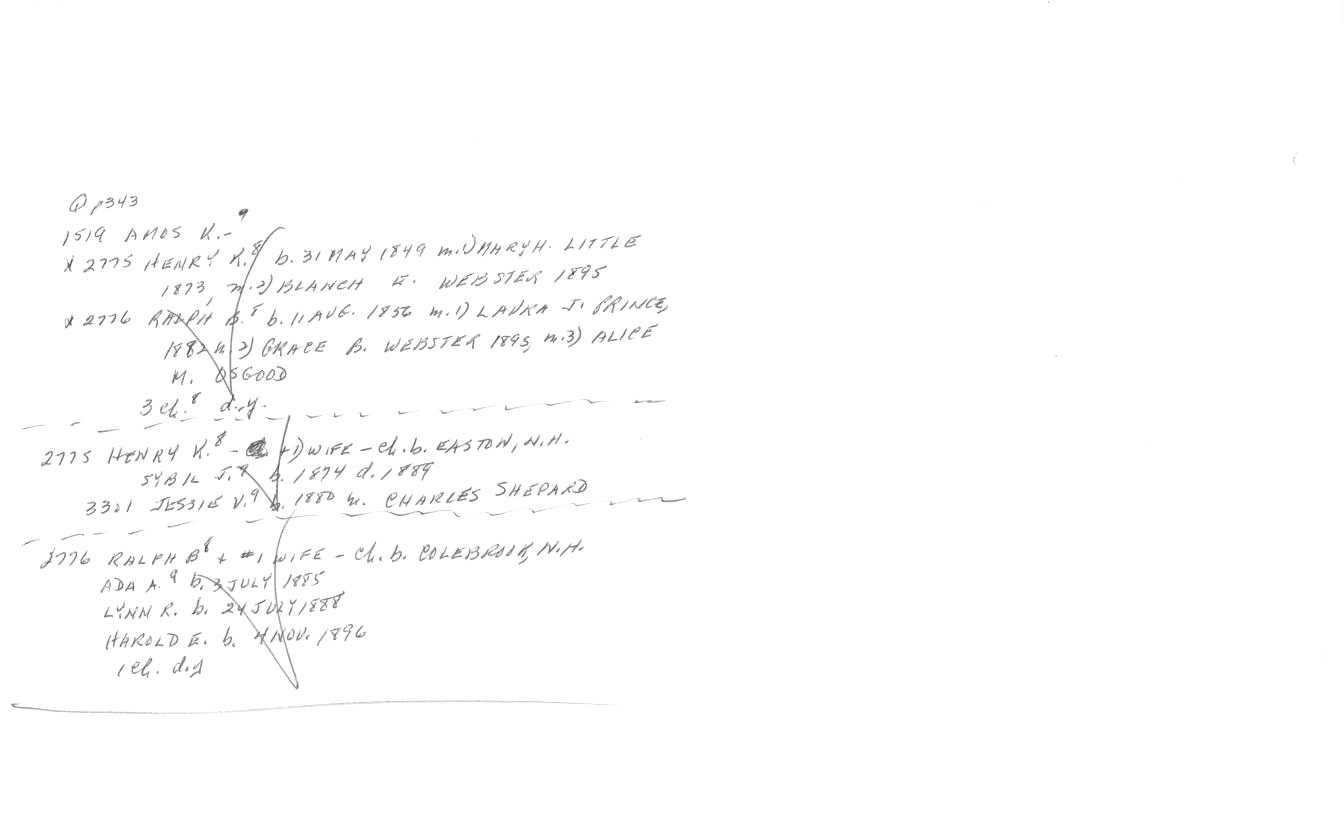 Q p343
1519 AMOS K.-
* 2775 HENRY K.8 b. 31 MAY 1849 m.1) MARY H. LITTLE
1873, m.2) BLANCH E. WEBSTER 1895
* 2776 RALPH B.8 b. 11 AUG. 1856 m.1) LAURA J. PRINCE,
1882 m.2) GRACE B. WEBSTER 1895, m.3) ALICE
M. OSGOOD
3 ch.8 d.y.
2775 HENRY K.8 - +1) WIFE - ch. b. EASTON, N.H.
SYBIL J.9 b. 1874 d. 1889
3321 JESSIE V.9 b. 1880 m. CHARLES SHEPARD
2776 RALPH B8 + #1 WIFE - ch. b. COLEBROOK, N.H.
ADA A.9 b. 3 JULY 1885
LYNN R. b. 24 JULY 1888
HAROLD E. b. 4 NOV. 1896
1 ch. d.y